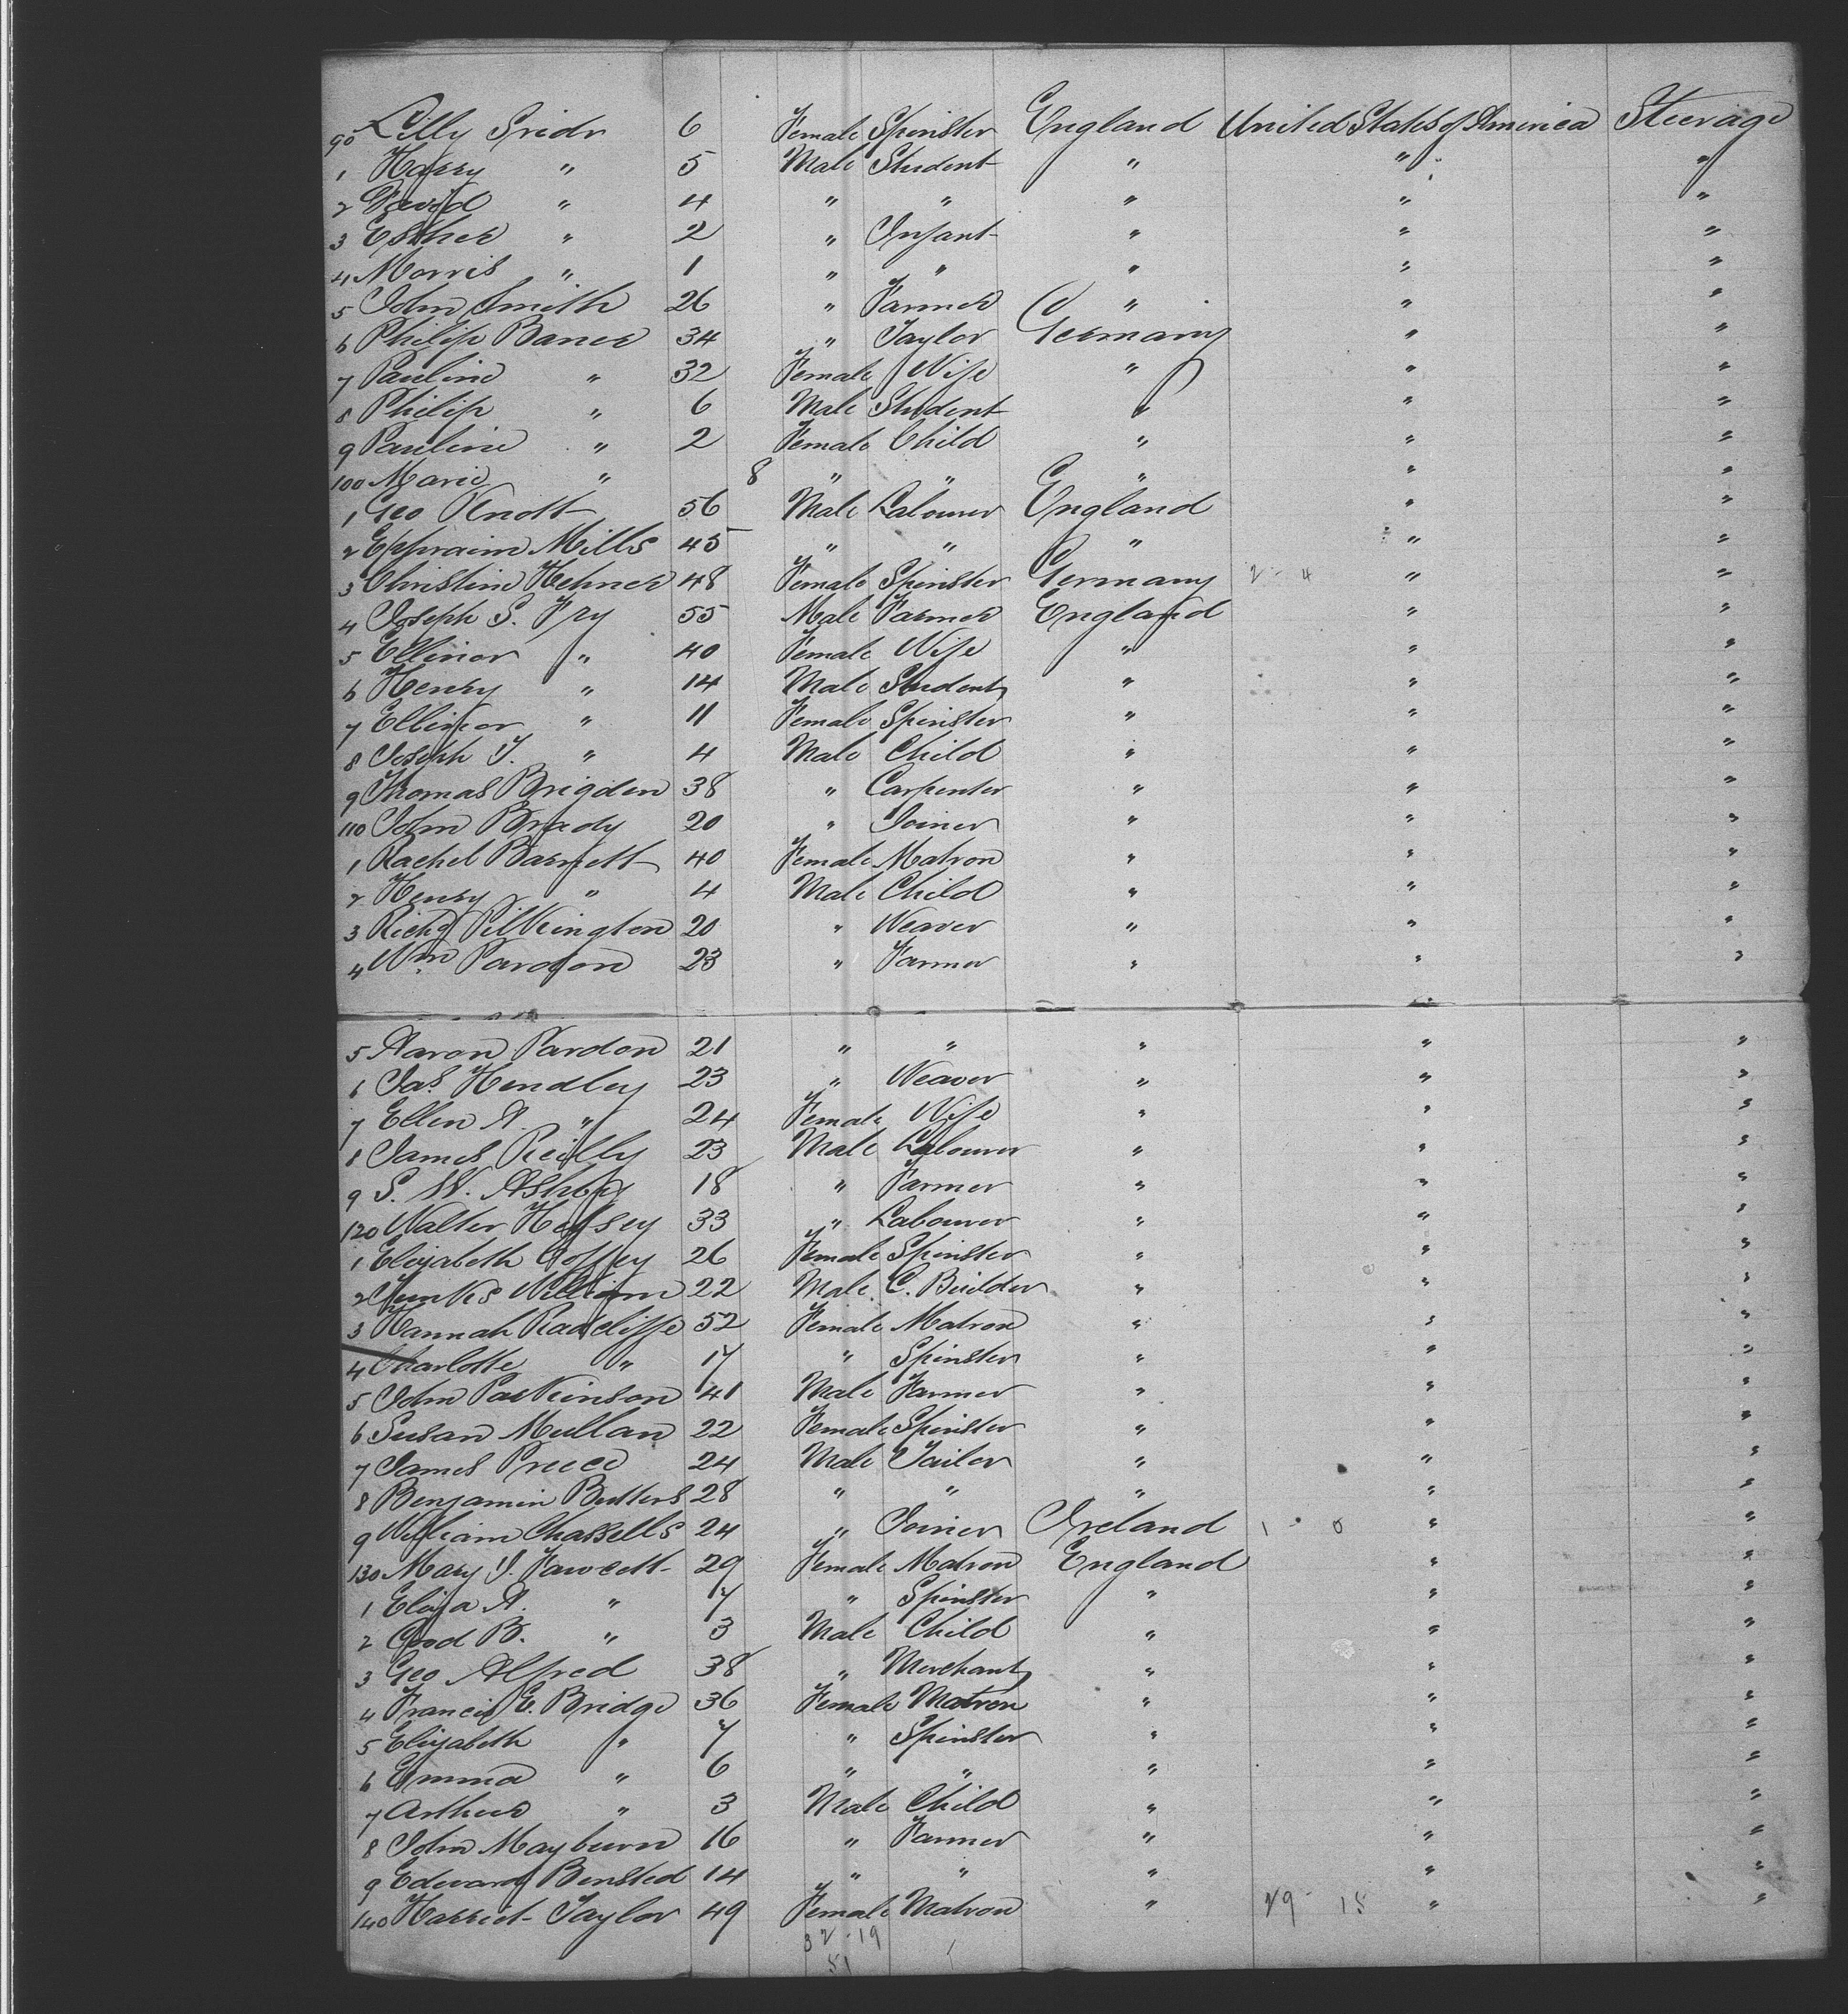 90 Lilly Sridr 6 Female Spinster England United States of America Steerage
1 Harry " 5 Male Student " " "
2 David " 4 " " " " "
3 Esther " 2 " Infant " " "
4 Morris " 1 " " " " "
5 John Smith 26 " Farmer " " "
6 Philip Baner 34 " Taylor Germany " "
7 Pauline " 32 Female Wife " " "
8 Philip " 6 Male Student " " "
9 Pauline " 2 Female Child " " "
100 Marie " 8 " " " " "
1 Geo Knott 56 Male Labourer England " "
2 Ephraim Mills 45 " " " " "
3 Christine Hehner 48 Female Spinster Germany 2 - 4 " "
4 Joseph S. Fry 55 Male Farmer England " "
5 Ellinor " 40 Female Wife " " "
6 Henry " 14 Male Student " " "
7 Ellinor " 11 Female Spinster " " "
8 Joseph J. " 4 Male Child " " "
9 Thomas Brigden 38 " Carpenter " " "
110 John Brady 20 " Joiner " " "
1 Rachel Barnett 40 Female Matron " " "
2 Henry " 4 Male Child " " "
3 Richd Pilkington 20 " Weaver " " "
4 Wm Pardon 23 " Farmer " " "
5 Aaron Pardon 21 " " " " "
6 Jas. Hendley 23 " Weaver " " "
7 Ellen A. " 24 Female Wife " " "
8 James Reilly 23 Male Labourer " " "
9 S. W. Ashby 18 " Farmer " " "
120 Walter Halsey 33 " Labourer " " "
1 Elizabeth Coffey 26 Female Spinster " " "
2 William 22 Male C. Builder " " "
3 Hannah Radcliffe 52 Female Matron " " "
4 Charlotte " 17 " Spinster " " "
5 John Parkinson 41 Male Farmer " " "
6 Susan Mullan 22 Female Spinster " " "
7 James Preece 24 Male Tailor " " "
8 Benjamin Butters 28 " " " " "
9 William Chassells 24 " Joiner Ireland 1 - 0 " "
130 Mary J. Fawcett 29 Female Matron England " "
1 Eliza A. " 7 " Spinster " " "
2 B. " 3 Male Child " " "
3 Geo Alfred 38 " Merchant " " "
4 Francis E. Bridge 36 Female Matron " " "
5 Elizabeth " 7 " Spinster " " "
6 Emma " 6 " " " " "
7 Arthur " 3 Male Child " " "
8 John Mayburn 16 " Farmer " " "
9 Edward Bensted 14 " " " " "
140 Harriet Taylor 49 Female Matron " 29 - 15 " "
32 - 19
51